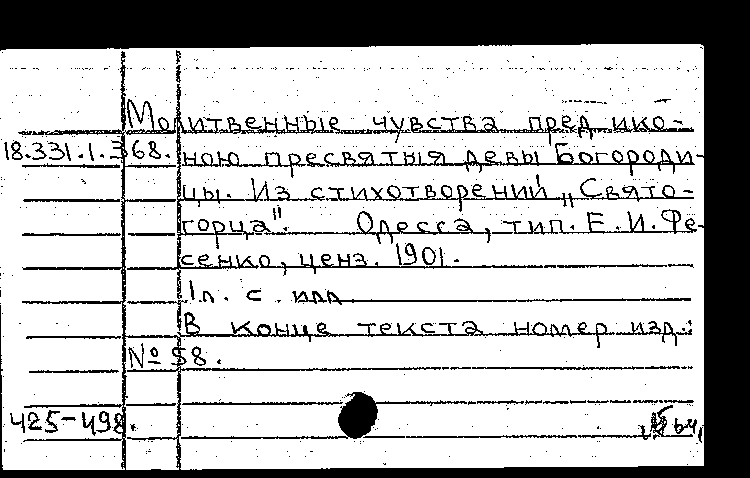 Молитвенные чувства пред ико-
18.331.1.368. ною пресвятыя девы Богороди-
цы. Из стихотворений „Свято-
горца". Одесса, тип. Е. И. Фе-
сенко, ценз. 1901.
1л. с илл.
В конце текста номер изд.:
№ 58.
425-498.